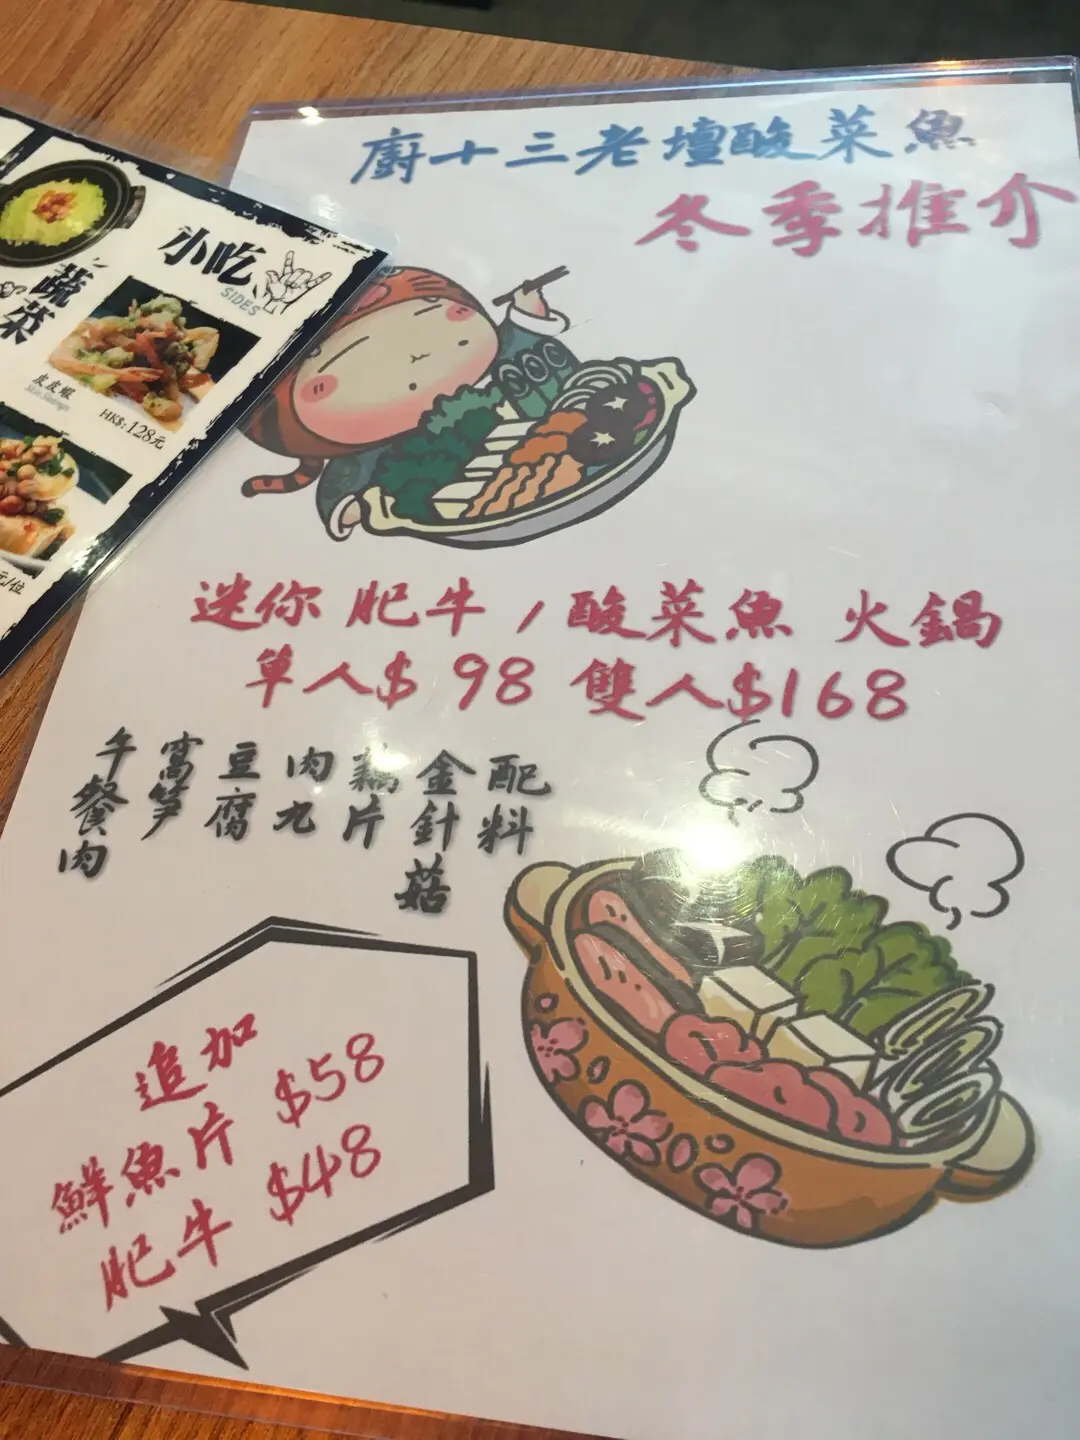 廚十三老壇酸菜魚
冬季推介
小吃
SIDES
蔬菜
皮皮蝦
HK$:128元
元/位
迷你 肥牛 / 酸菜魚 火鍋
單人$ 98 雙人$168
配料
金針菇
藕片
肉丸
豆腐
窩筍
午餐肉
追加
鮮魚片 $58
肥牛 $48